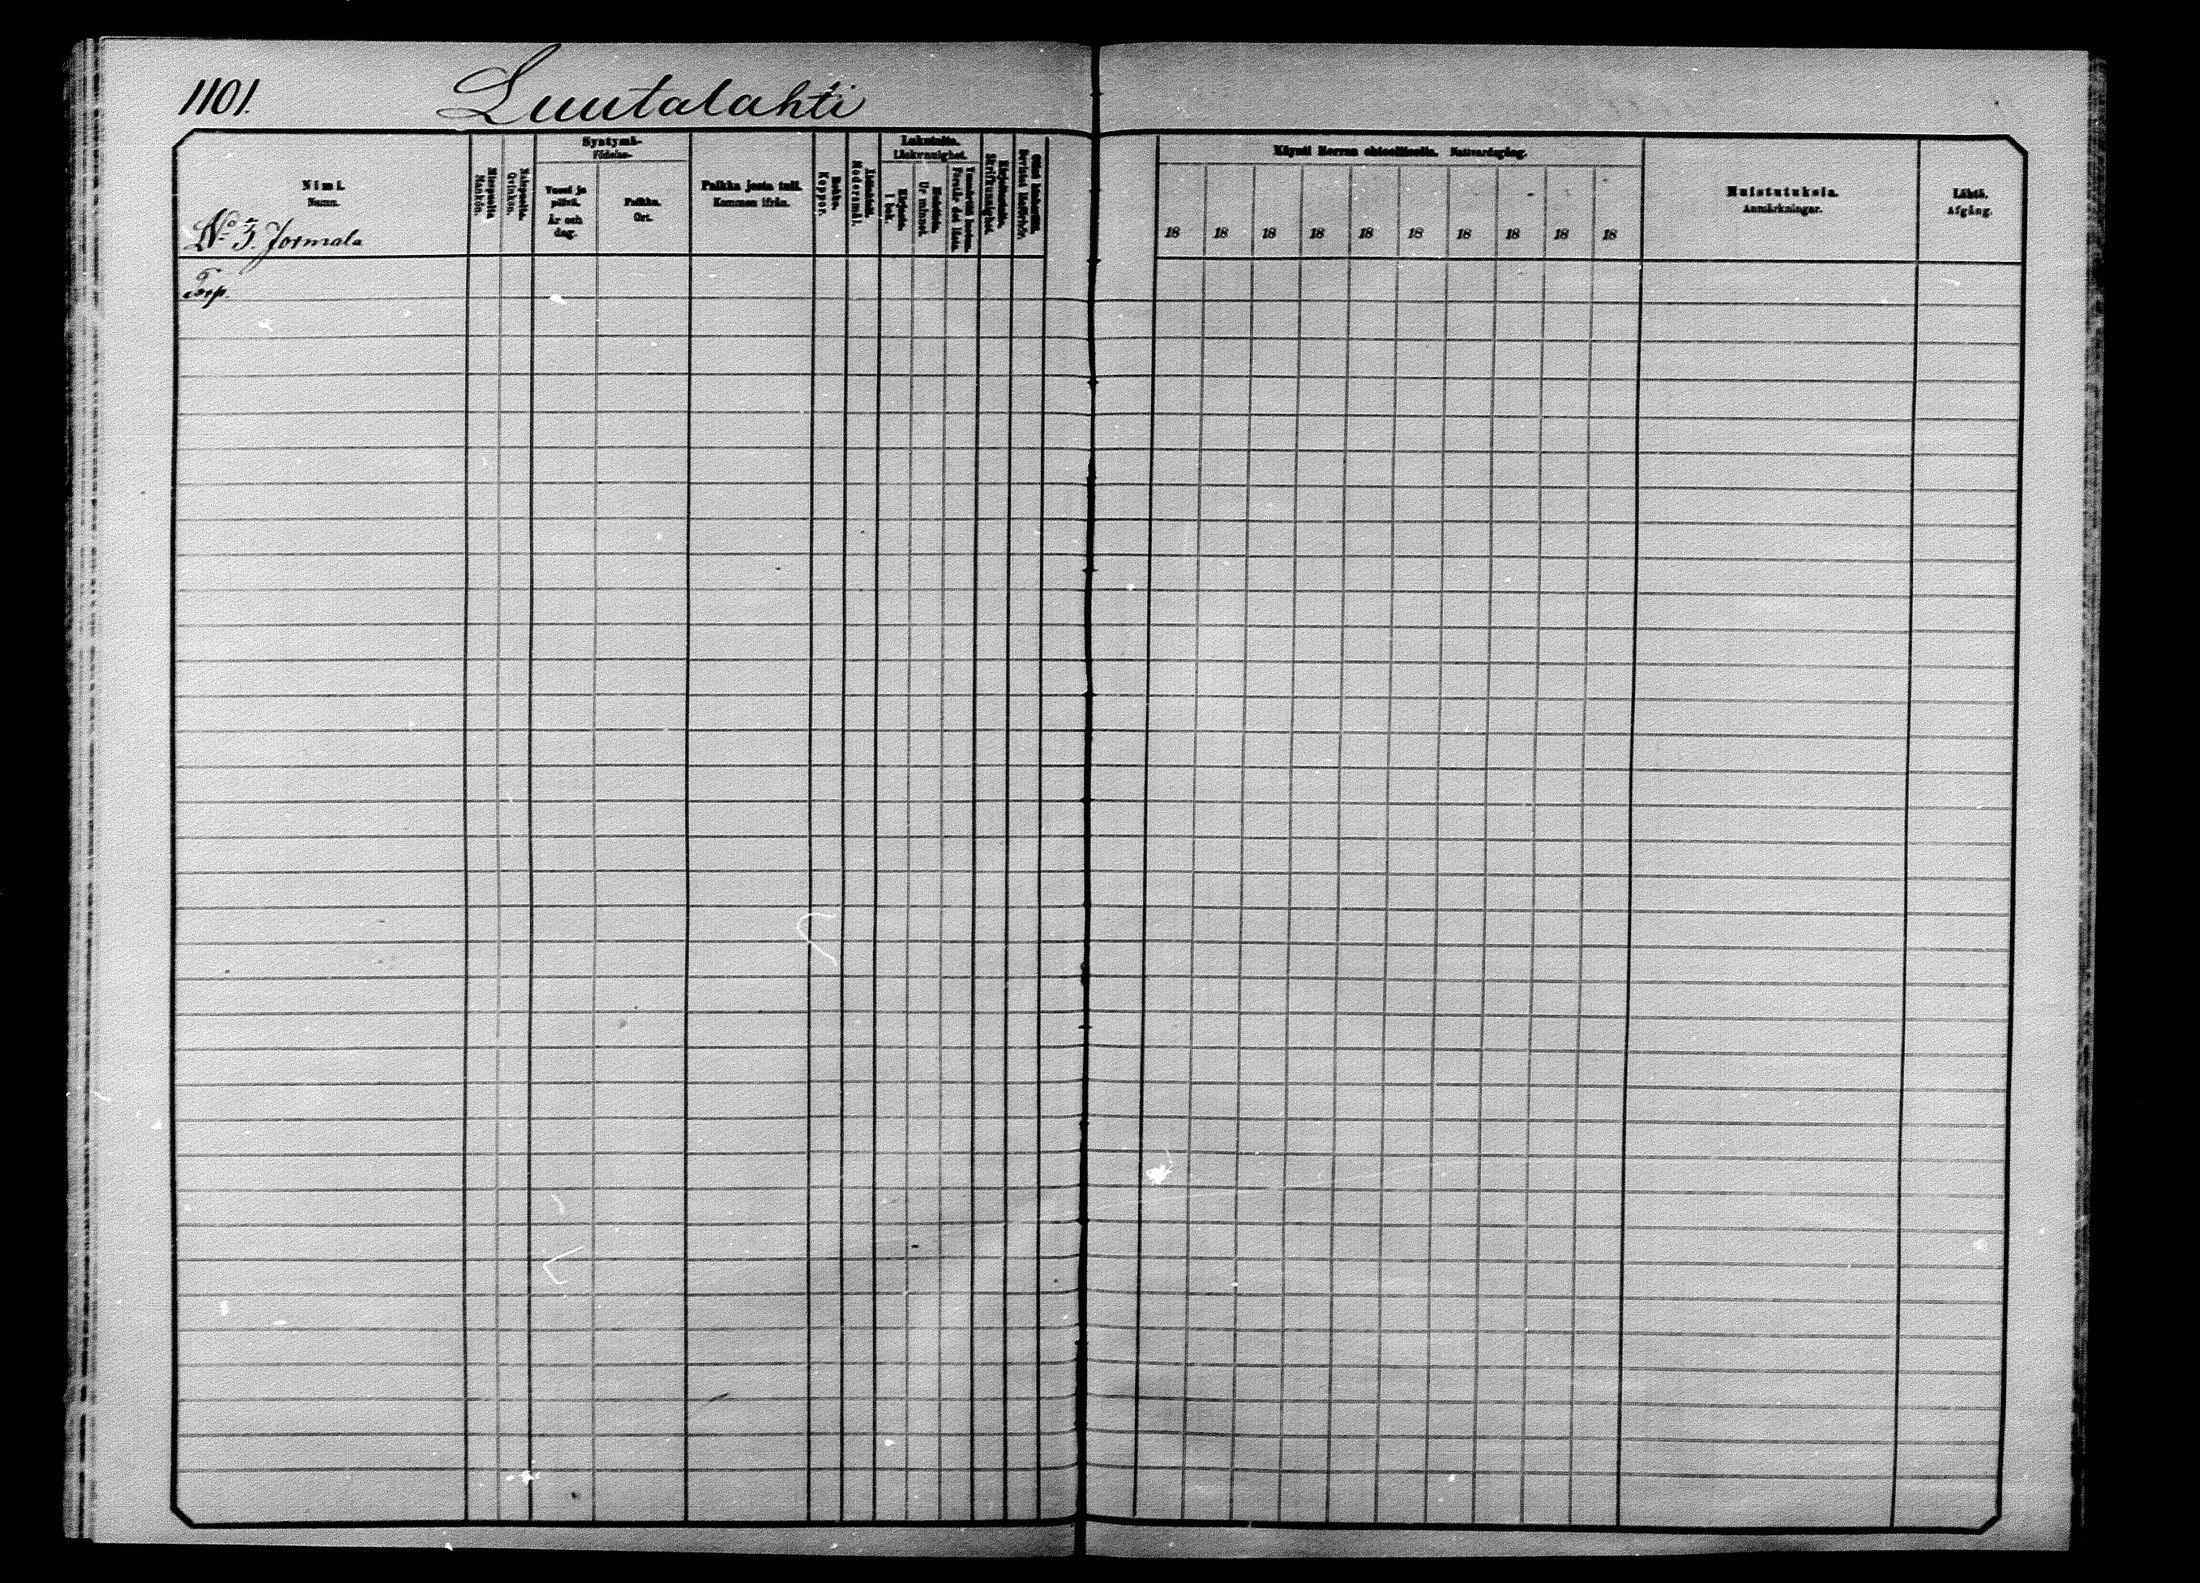 1101.
Luutalahti
Nimi.
Namn.
No 3. Jormala
Miespuolia.
Mankön.
Naispuolia.
Qvinkön.
Syntymä-
Födelse-
Vuosi ja
päivä.
År och
dag.
Paikka.
Ort.
Paikka josta tuli.
Kommen ifrån.
Rokko.
Koppor.
Modersmål.
Lukutaito.
Läskunnighet.
Kirjasta.
I bok.
Ur minnet.
Förstår det lästa.
Kirjoitustaito.
Skrifkunnighet.
Käynti Herran ehtoollisella. Nattvardsgång.
18 18 18 18 18 18 18 18 18 18
Muistutuksia.
Anmärkningar.
Lähtö.
Afgång.
Torp.